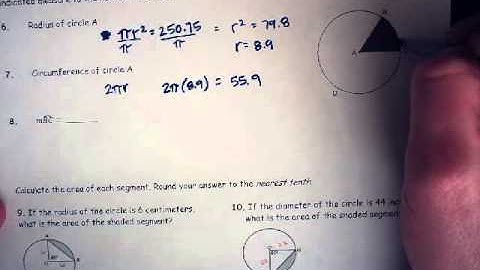 indicated measure
6. Radius of circle A
πr² = 250.75 = r² = 79.8
π π r = 8.9
7. Circumference of circle A
2πr 2π(8.9) = 55.9
8. mBC = ______
Calculate the area of each segment. Round your answer to the nearest tenth.
9. If the radius of the circle is 6 centimeters, what is the area of the shaded segment?
10. If the diameter of the circle is 44
what is the area of the shaded segmen
A
B
D